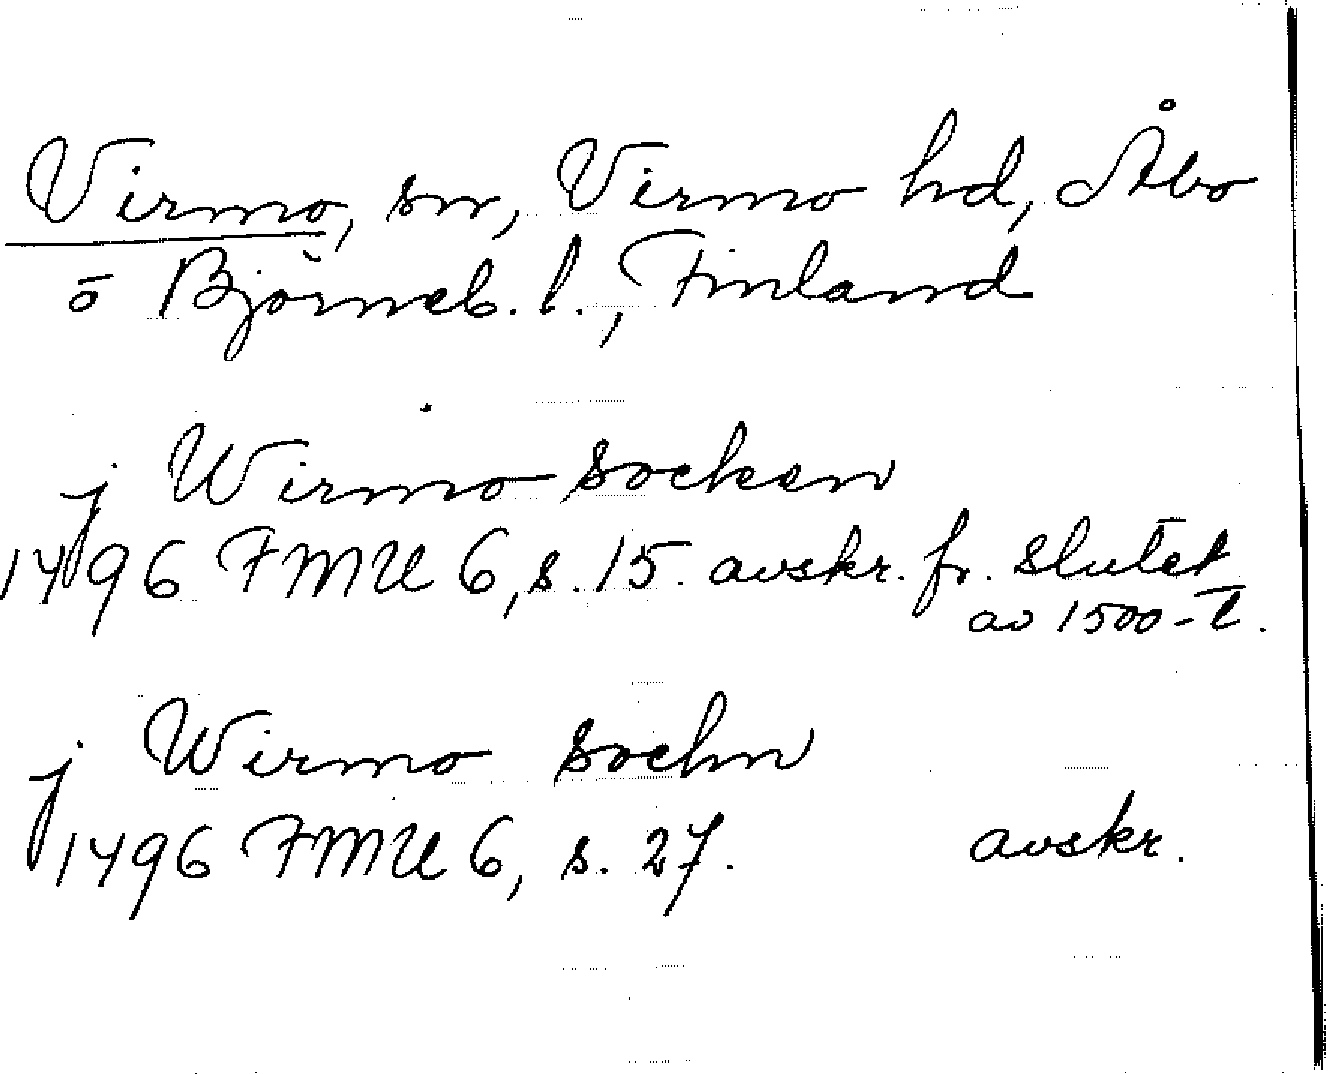 Virmo, sn, Virmo hd, Åbo
o Björneb. l., Finland
j Wirmo socken
1496 FMU 6, s. 15. avskr. fr. slutet
av 1500-t.
j Wirmo sochn
1496 FMU 6, s. 27. avskr.